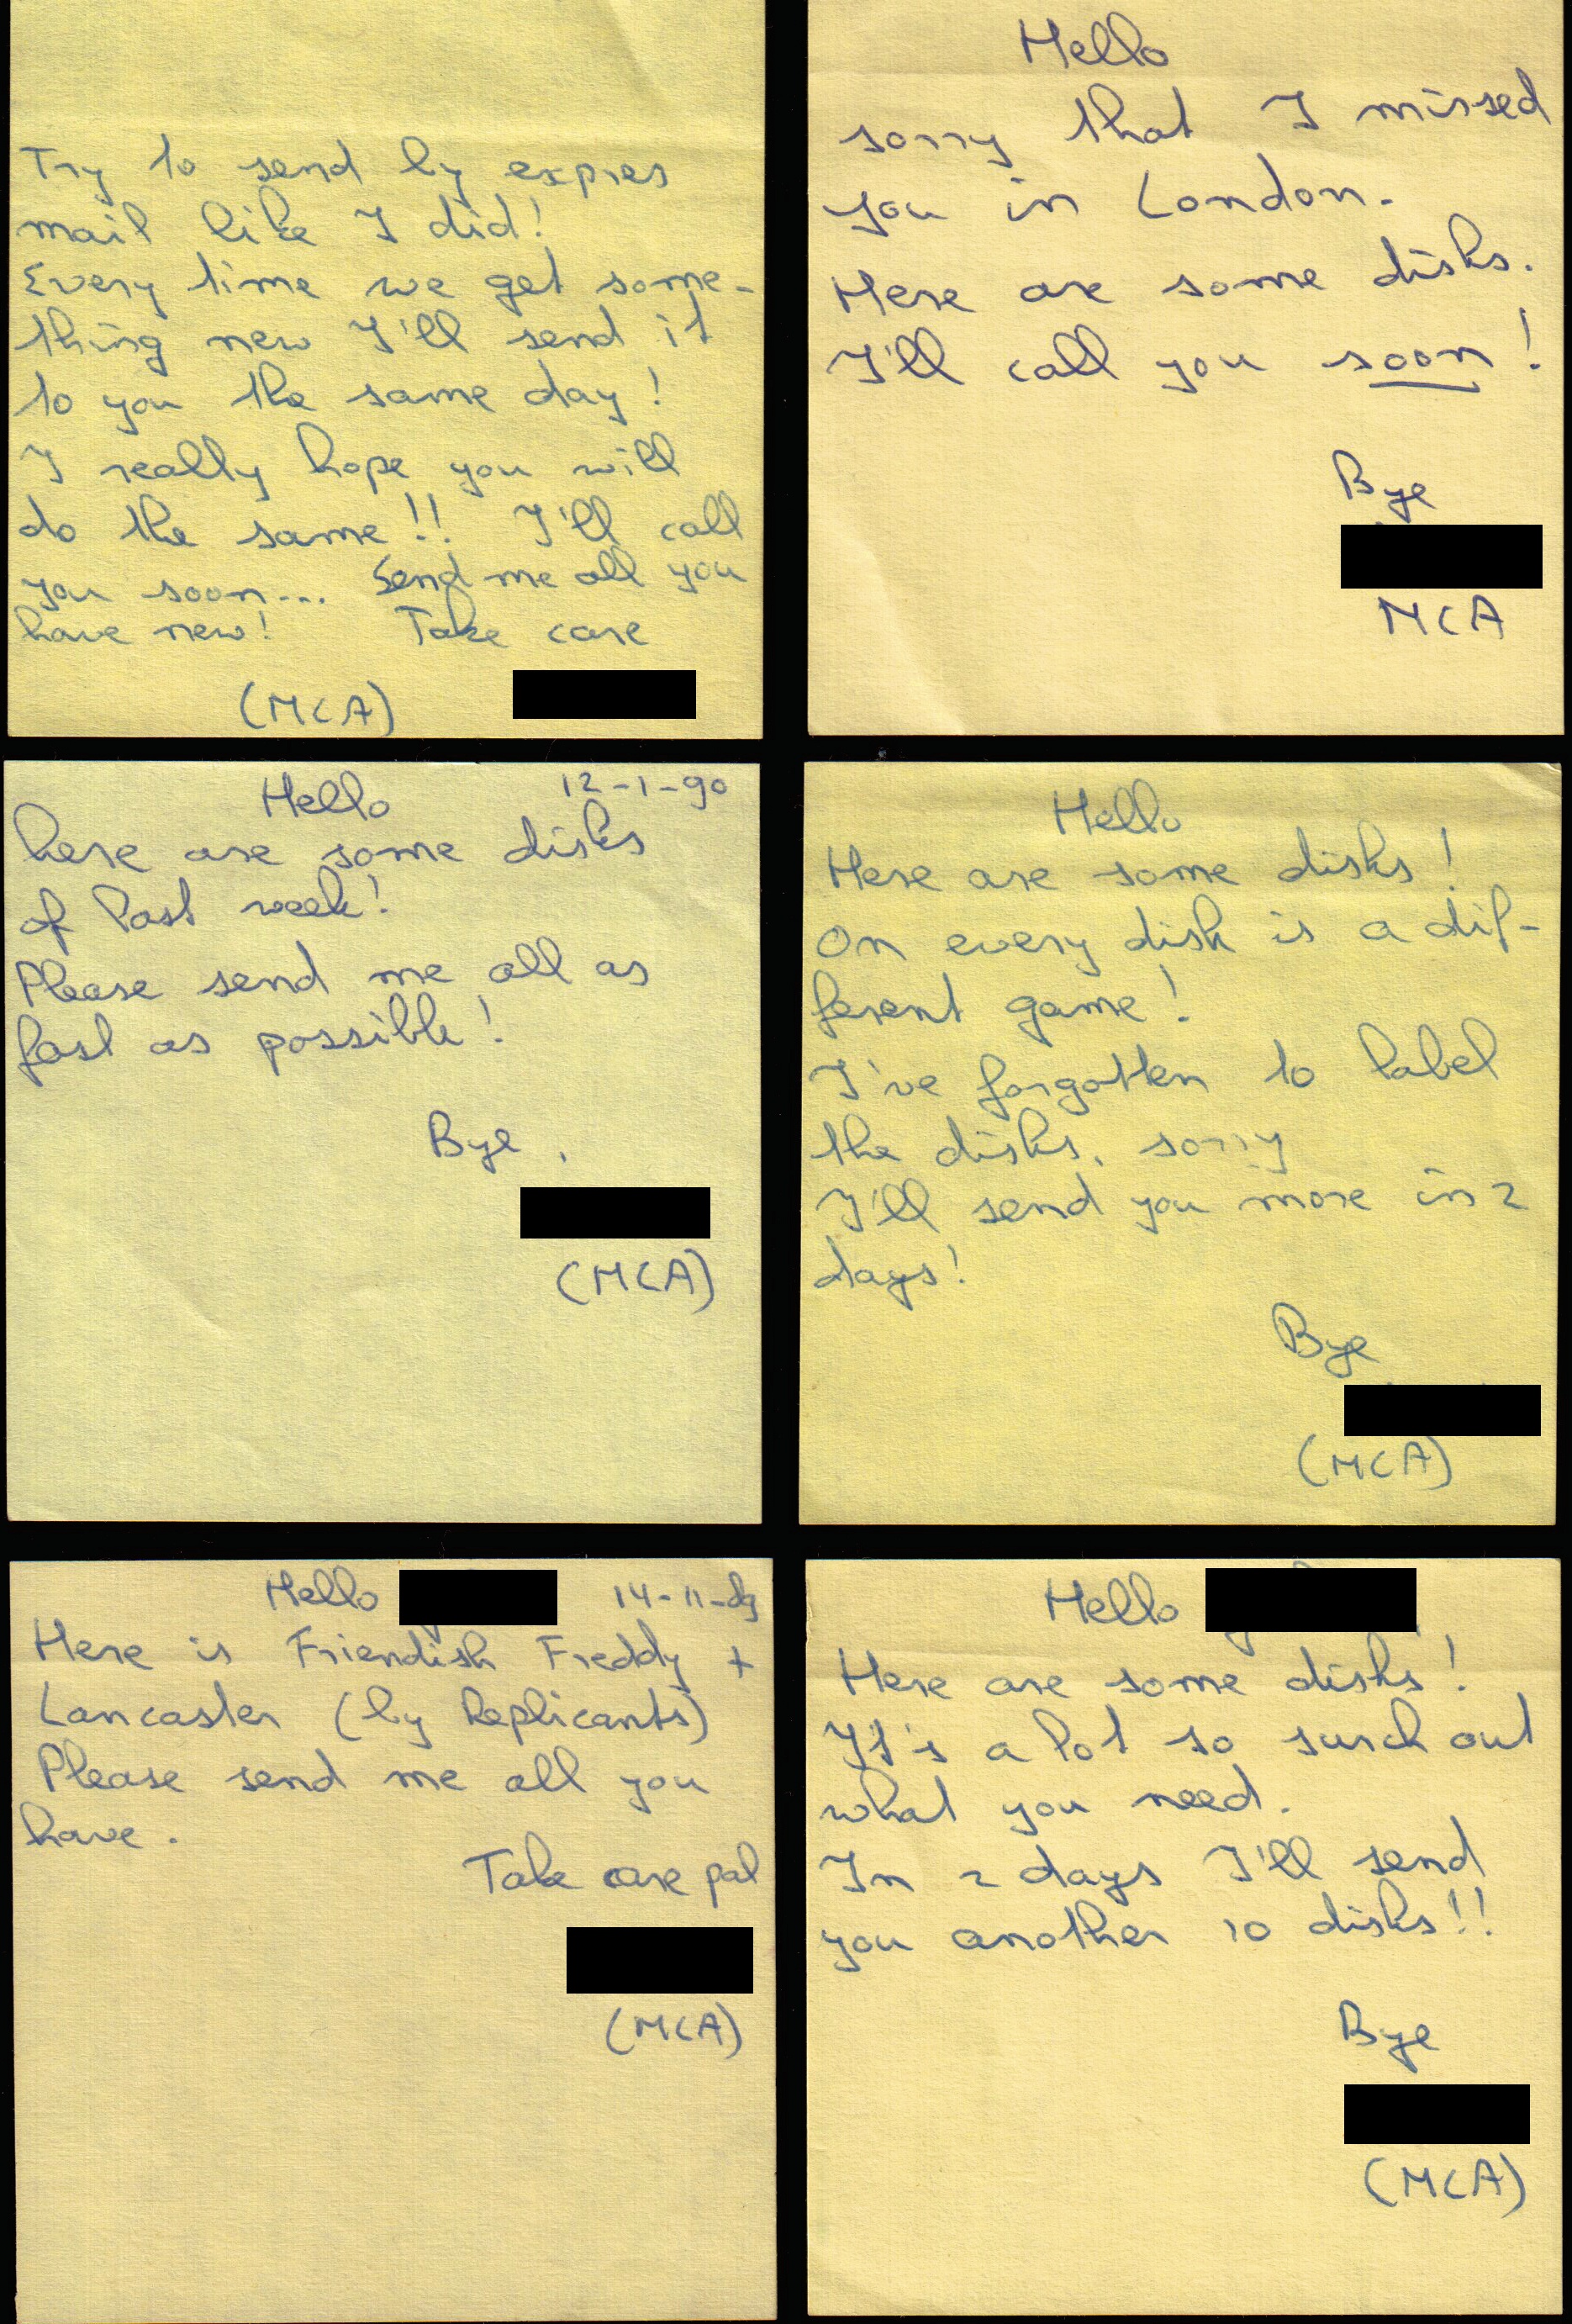 Try to send by expres
mail like I did!
Every time we get some-
thing new I'll send it
to you the same day!
I really hope you will
do the same!! I'll call
you soon... Send me all you
have new! Take care
(MCA)
Hello
sorry that I missed
you in London.
Here are some disks.
I'll call you soon!
Bye
MCA
Hello 12-1-90
here are some disks
of last week!
Please send me all as
fast as possible!
Bye.
(MCA)
Hello
Here are some disks!
On every disk is a dif-
ferent game!
I've forgotten to label
the disks, sorry
I'll send you more in 2
days!
Bye
(MCA)
Hello 14-11-89
Here is Friendish Freddy +
Lancaster (by Replicants)
Please send me all you
have.
Take care pal
(MCA)
Hello
Here are some disks!
It's a lot so surch out
what you need.
In 2 days I'll send
you another 10 disks!!
Bye
(MCA)